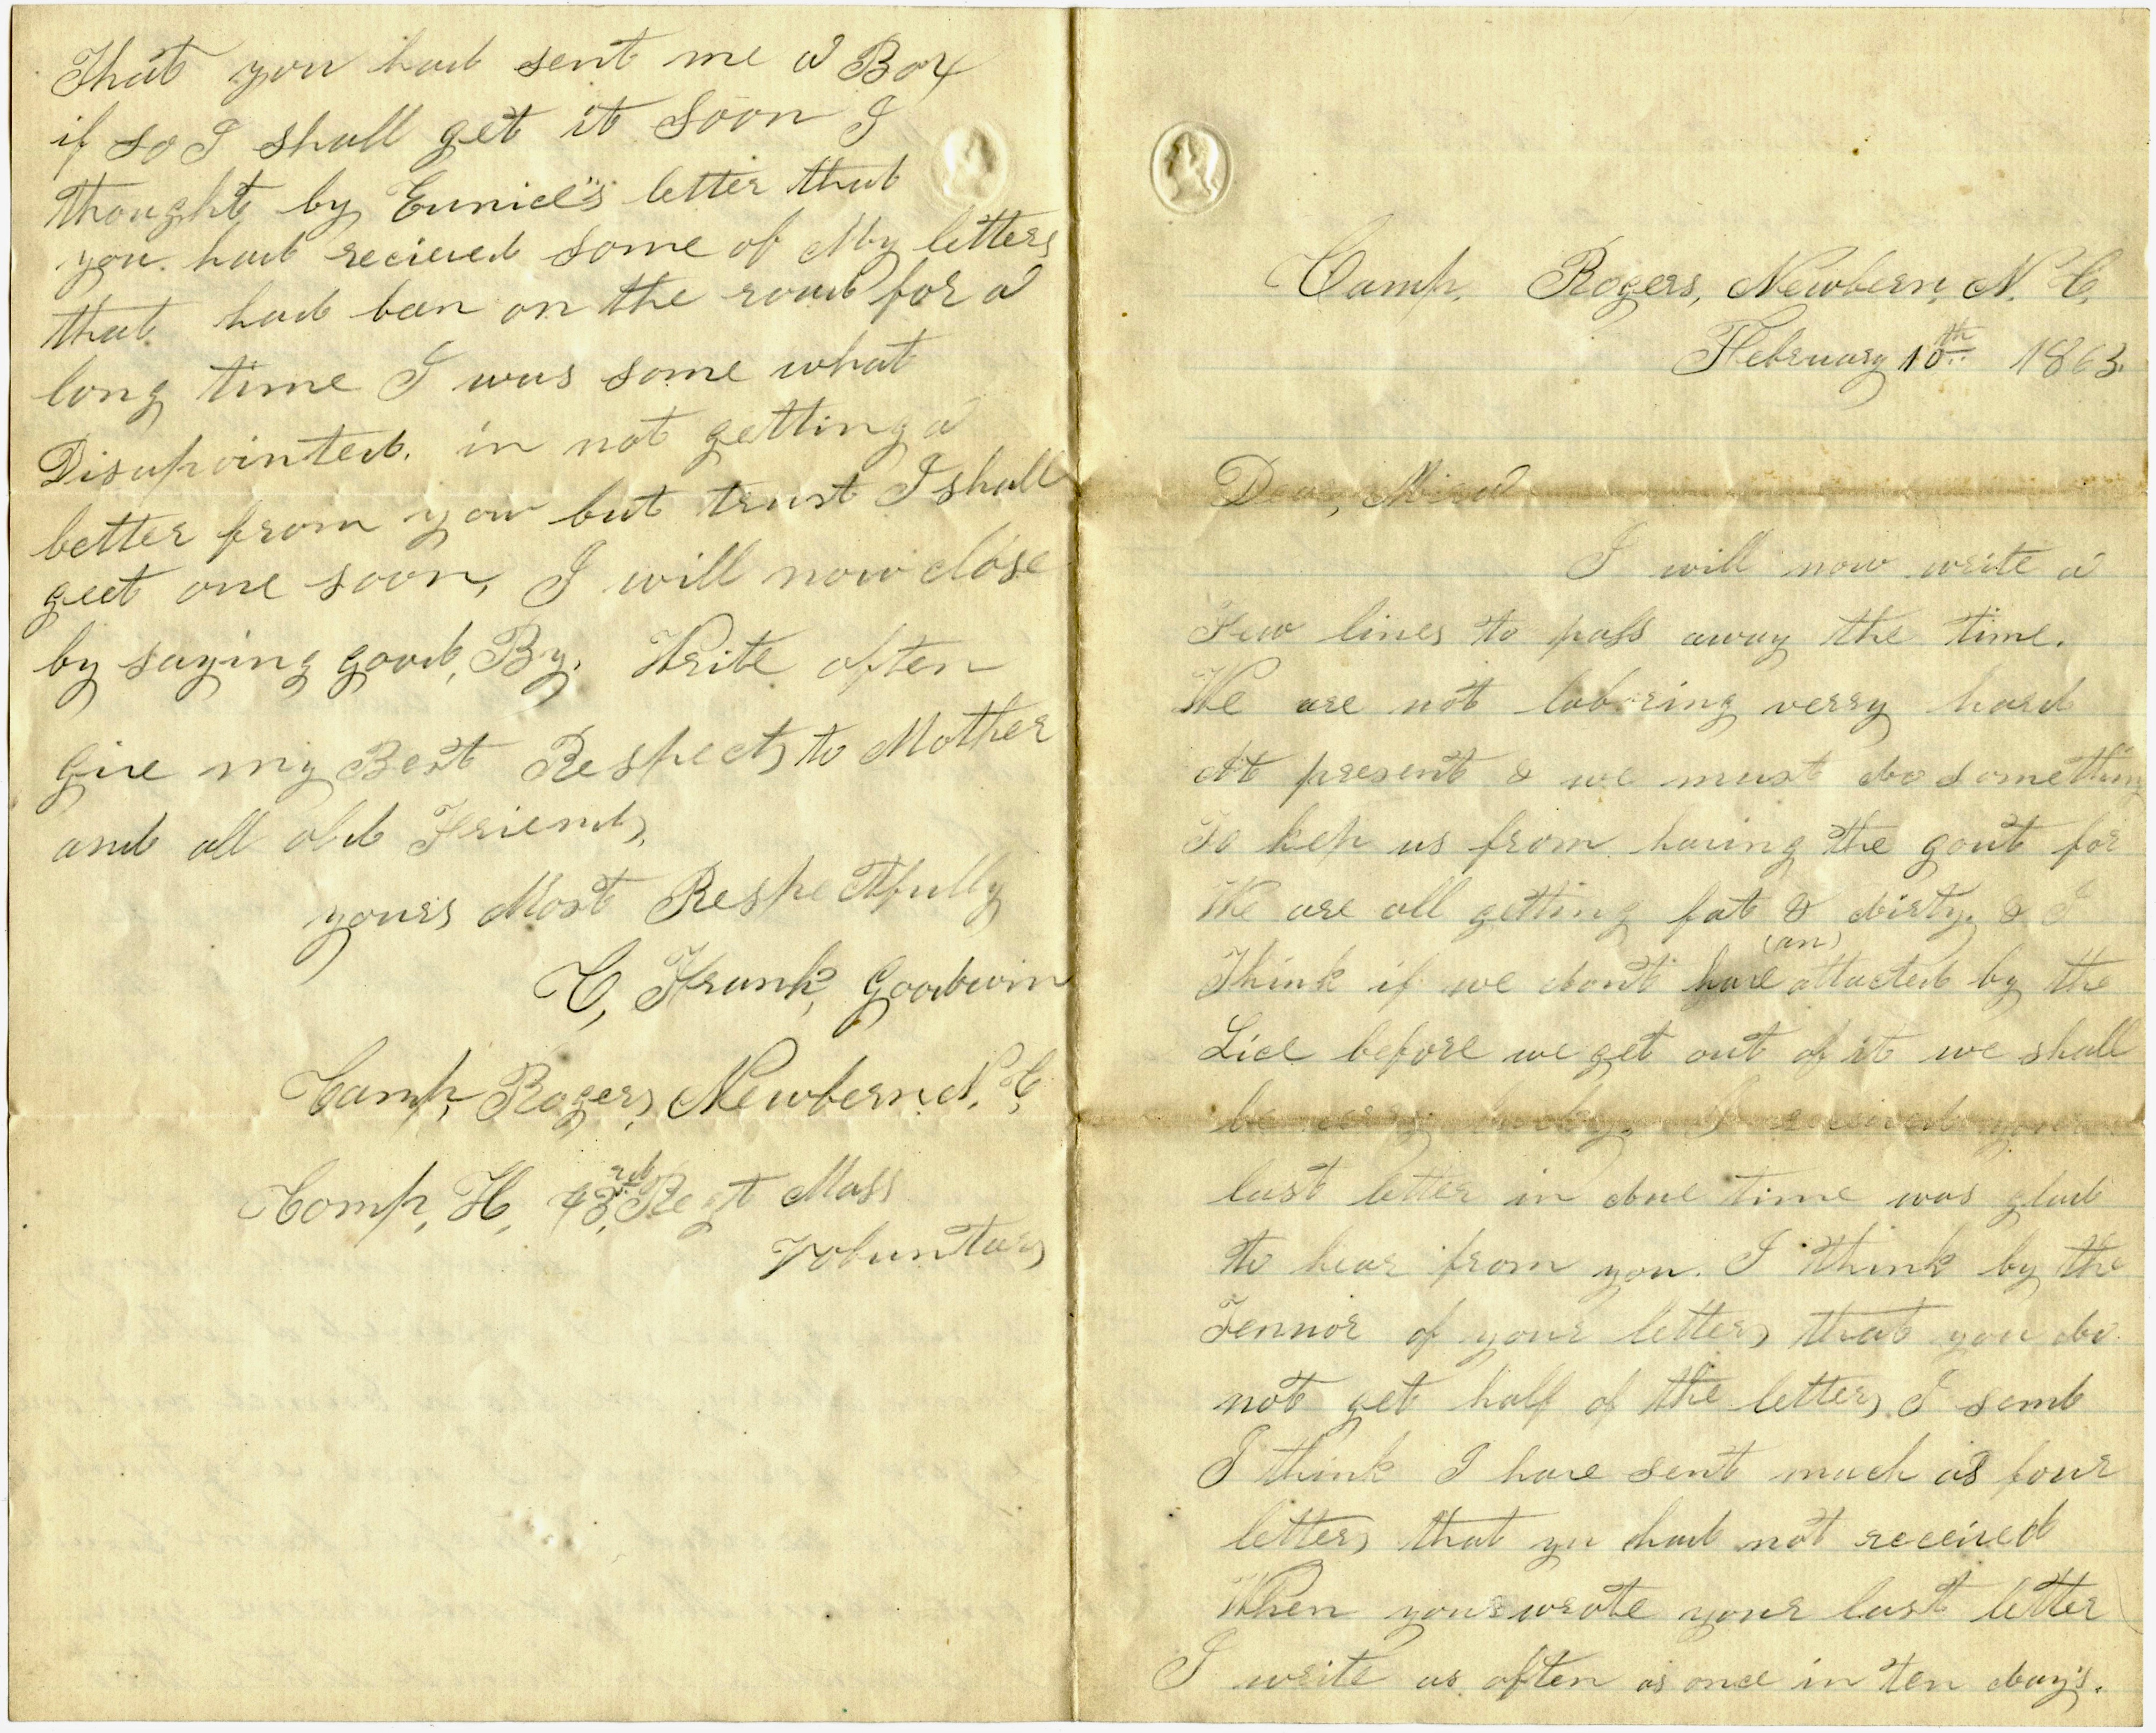 Camp, Rogers, Newbern, N. C,
February 10th 1863.
Dear, Mira
I will now write a
Few lines to pass away the time.
We are not laboring verry hard
At present & we must do something
To kep us from having the gout for
We are all getting fat & dirty, & I
Think if we don't have (an) attacted by the
Lice before we get out of it we shall
be verry lucky. I recieved your
last letter in due time was glad
to hear from you. I think by the
Tennor of your letters that you do
not get half of the letters I send
I think I have sent much as four
letters that yu had not received
When you wrote your last letter
I write as often as once in ten day's.
That you had sent me a Box
if so I shall get it soon I
thought by Eunice"s letter that
you had recieved some of My letters
that had ben on the road for a
long time I was some what
Disapointed. in not getting a
letter from you but trust I shall
geet one soon, I will now close
by saying good, By. Write often
Give my Best Respects to Mother
and all old Friends,
yours Most Respectfully
C, Frank, Goodwin
Camp, Rogers, Newbern. N. C,
Comp, H, 43,rd Regt Mass
Voluntars